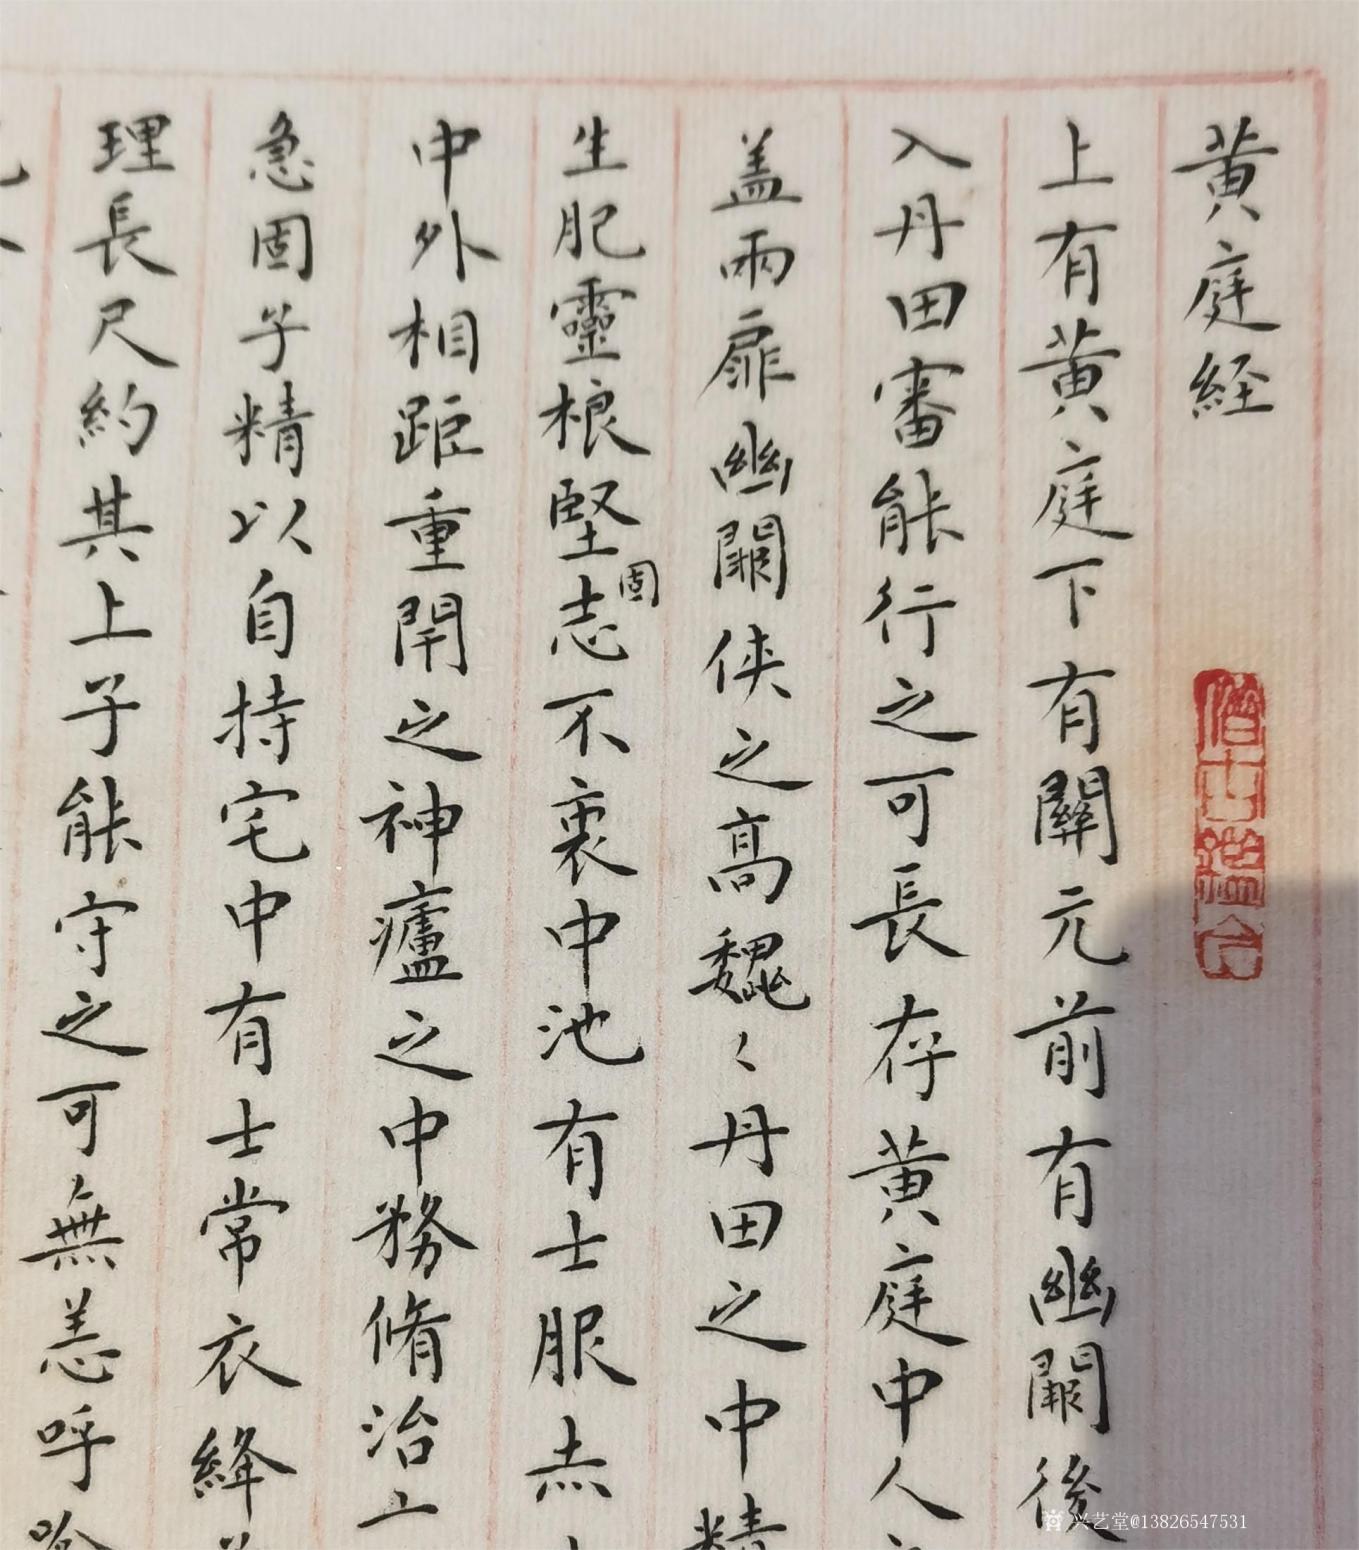 黄庭経
上有黄庭下有關元前有幽闕後
入丹田審能行之可長存黄庭中人
盖兩扉幽闕侠之高魏々丹田之中精
生肥靈根堅固志不衰中池有士服赤
中外相距重閇之神廬之中務脩治
急固子精以自持宅中有士常衣絳
理長尺約其上子能守之可無恙呼噏
兴艺堂@13826547531